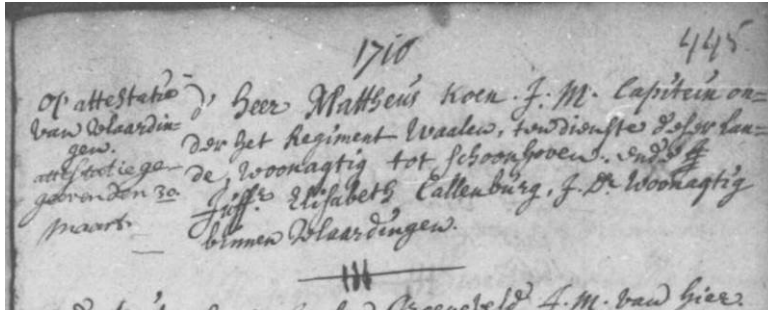 1710
445.
Op attestatie
van Vlaardin=
gen.
attestatie ge-
geeven den 30.
maart.
d' Heer Mattheus Koen. J. M. Capitein on=
der het Regiment Waalen, ten dienste deser Lan=
de, Woonagtig tot Schoonhoven. ende
Juffr. Elisabeth Callenburg, J. D. Woonagtig
binnen Vlaardingen.
Groeneveld J. M. van hier.